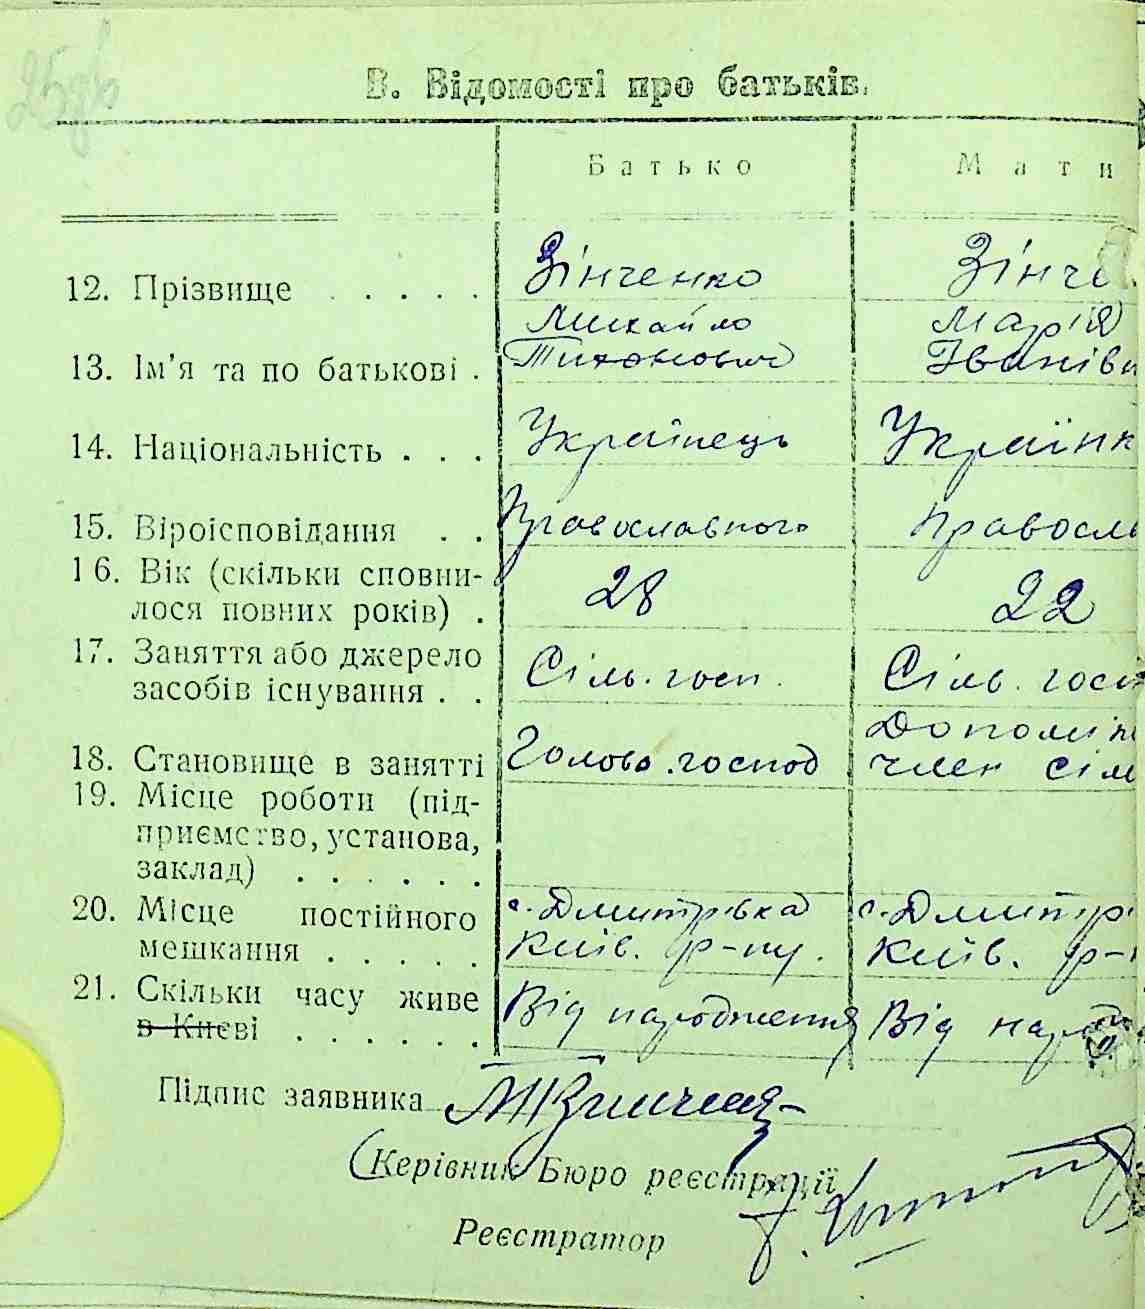 В. Відомості про батьків.
Батько Мати
12. Прізвище . . . . . Зінченко Зінче
Михайло Марія
13. Ім'я та по батькові . Тихонович Іванівн
14. Національність . . . Українець Українк
15. Віроісповідання . . Православного Правосла
16. Вік (скільки сповни-
лося повних років) . 28 22
17. Заняття або джерело
засобів існування . . Сіль. госп. Сіль. госп
Допоміж
18. Становище в занятті Голова. господ член сіль
19. Місце роботи (під-
приємство, установа,
заклад) . . . . . .
20. Місце постійного с. Дмитрівка с. Дмитрі
мешкання . . . . . Київ. р-ну. Київ. р-н
21. Скільки часу живе Від народження Від народ
в Києві . . . . . .
Підпис заявника
Керівник Бюро реєстрації
Реєстратор